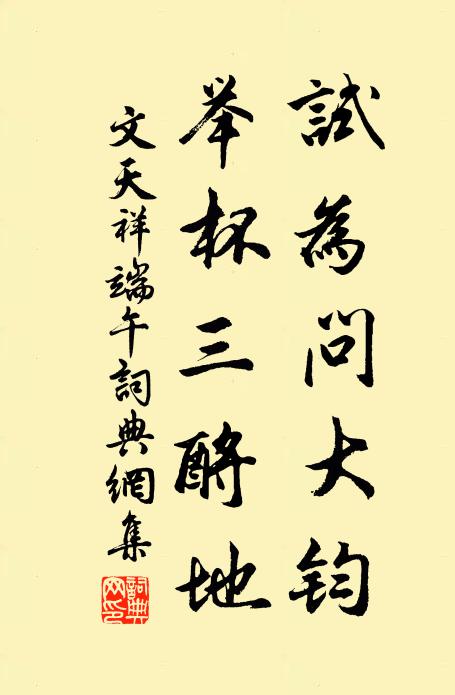 試為問大鈞
举杯三酹地
文天祥端午詞典網集
詞典網印